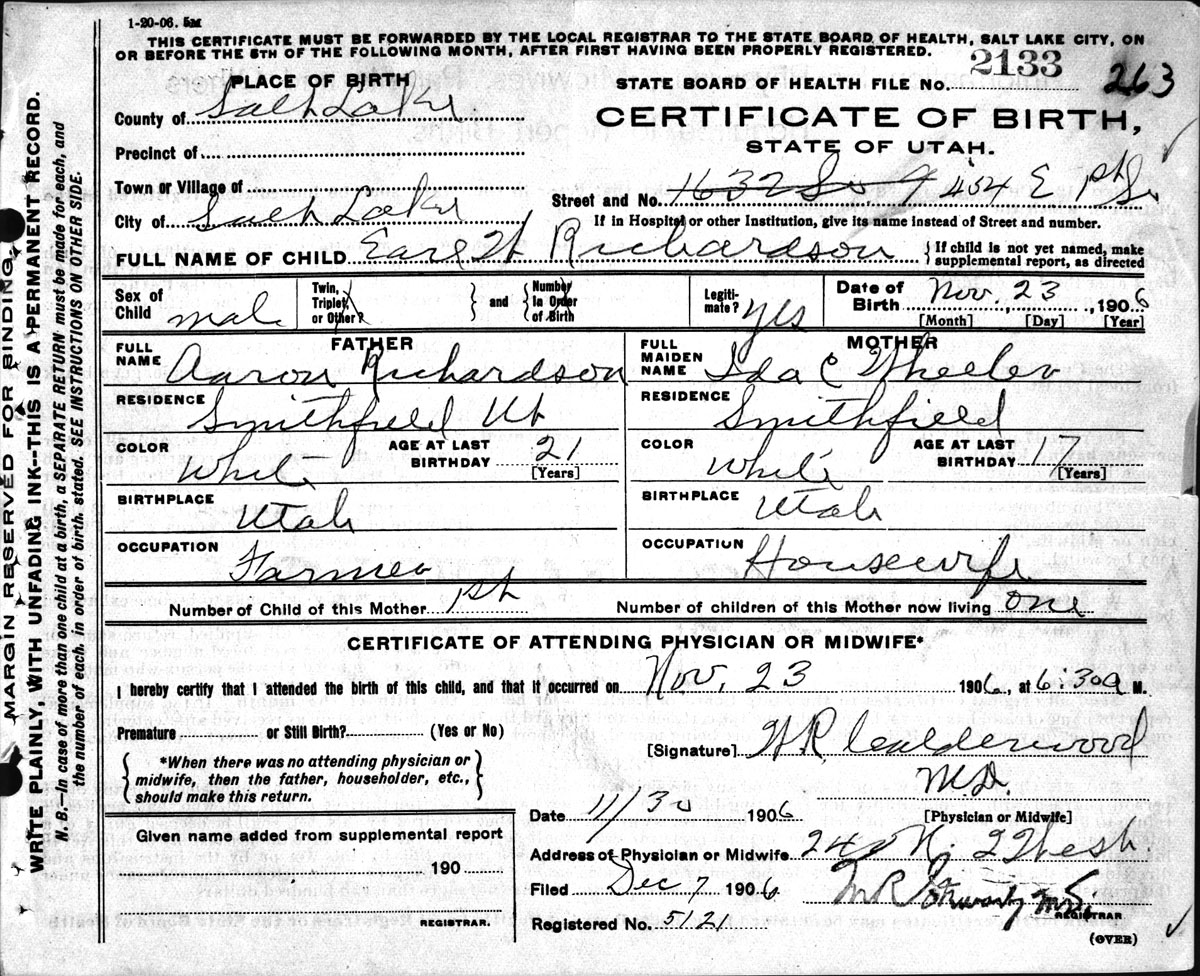 1-20-06. 5M
THIS CERTIFICATE MUST BE FORWARDED BY THE LOCAL REGISTRAR TO THE STATE BOARD OF HEALTH, SALT LAKE CITY, ON
OR BEFORE THE 5TH OF THE FOLLOWING MONTH, AFTER FIRST HAVING BEEN PROPERLY REGISTERED.
PLACE OF BIRTH
STATE BOARD OF HEALTH FILE No. 2133 263
County of Salt Lake
CERTIFICATE OF BIRTH,
STATE OF UTAH.
Precinct of
Town or Village of
Street and No. 1632 So. 9 454 E 1st So
City of Salt Lake
If in Hospital or other Institution, give its name instead of Street and number.
FULL NAME OF CHILD Earl W Richardson
{If child is not yet named, make
supplemental report, as directed
Sex of Child male
Twin, Triplet, or Other? } and { Number In Order of Birth
Legitimate? yes
Date of Birth Nov. 23, 1906
[Month] [Day] [Year]
FATHER
FULL NAME Aaron Richardson
RESIDENCE Smithfield Ut
COLOR White AGE AT LAST BIRTHDAY 21 [Years]
BIRTHPLACE Utah
OCCUPATION Farmer
MOTHER
FULL MAIDEN NAME Ida C Wheeler
RESIDENCE Smithfield
COLOR White AGE AT LAST BIRTHDAY 17 [Years]
BIRTHPLACE Utah
OCCUPATION Housewife
Number of Child of this Mother 1st Number of children of this Mother now living one
CERTIFICATE OF ATTENDING PHYSICIAN OR MIDWIFE*
I hereby certify that I attended the birth of this child, and that it occurred on Nov. 23 1906, at 6:30a M.
Premature or Still Birth? (Yes or No)
[Signature] W R Calderwood
M.D.
[Physician or Midwife]
{ *When there was no attending physician or
midwife, then the father, householder, etc.,
should make this return. }
Date 11/30 1906
Given name added from supplemental report
190
REGISTRAR.
Address of Physician or Midwife 242 N. 2 West
Filed Dec 7 1906
REGISTRAR
Registered No. 5121
(OVER)
MARGIN RESERVED FOR BINDING
WRITE PLAINLY, WITH UNFADING INK--THIS IS A PERMANENT RECORD.
N. B.—In case of more than one child at a birth, a SEPARATE RETURN must be made for each, and
the number of each, in order of birth, stated. SEE INSTRUCTIONS ON OTHER SIDE.